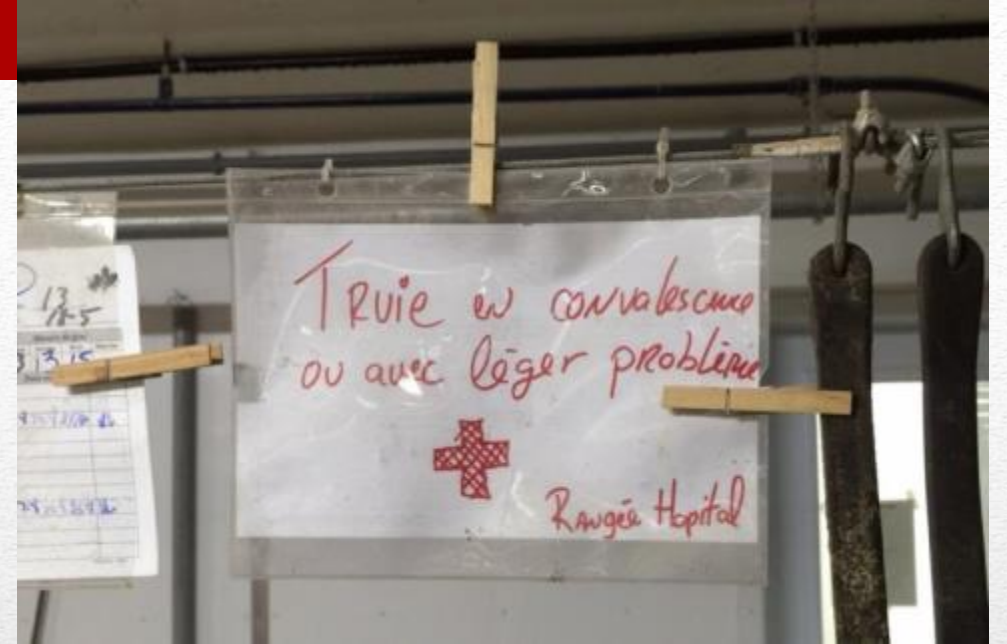 13
18-5
13 15
Truie en convalescence
ou avec léger problème
Rangée Hopital